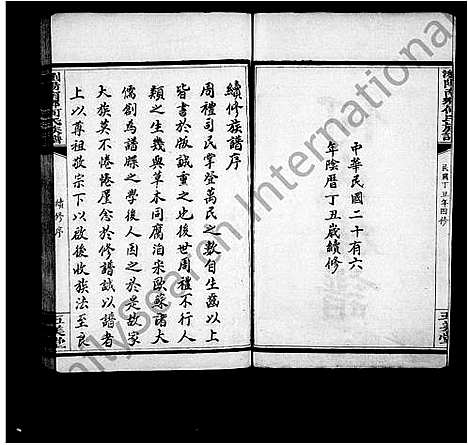 民國丁丑年四修
五美堂
中華民國二十有六
年陰曆丁丑歲續修
續修族譜序
周禮司民掌登萬民之數自生齒以上
皆書於版誠重之也後世周禮不行人
類之生幾與草木同腐泊宋歐蘇諸大
儒創為譜牒之學後人因之於是故家
大族莫不惓惓屢念於修譜誠以譜者
上以尊祖敬宗下以啟後收族法至良
續修序
五美堂
FamilySearch International